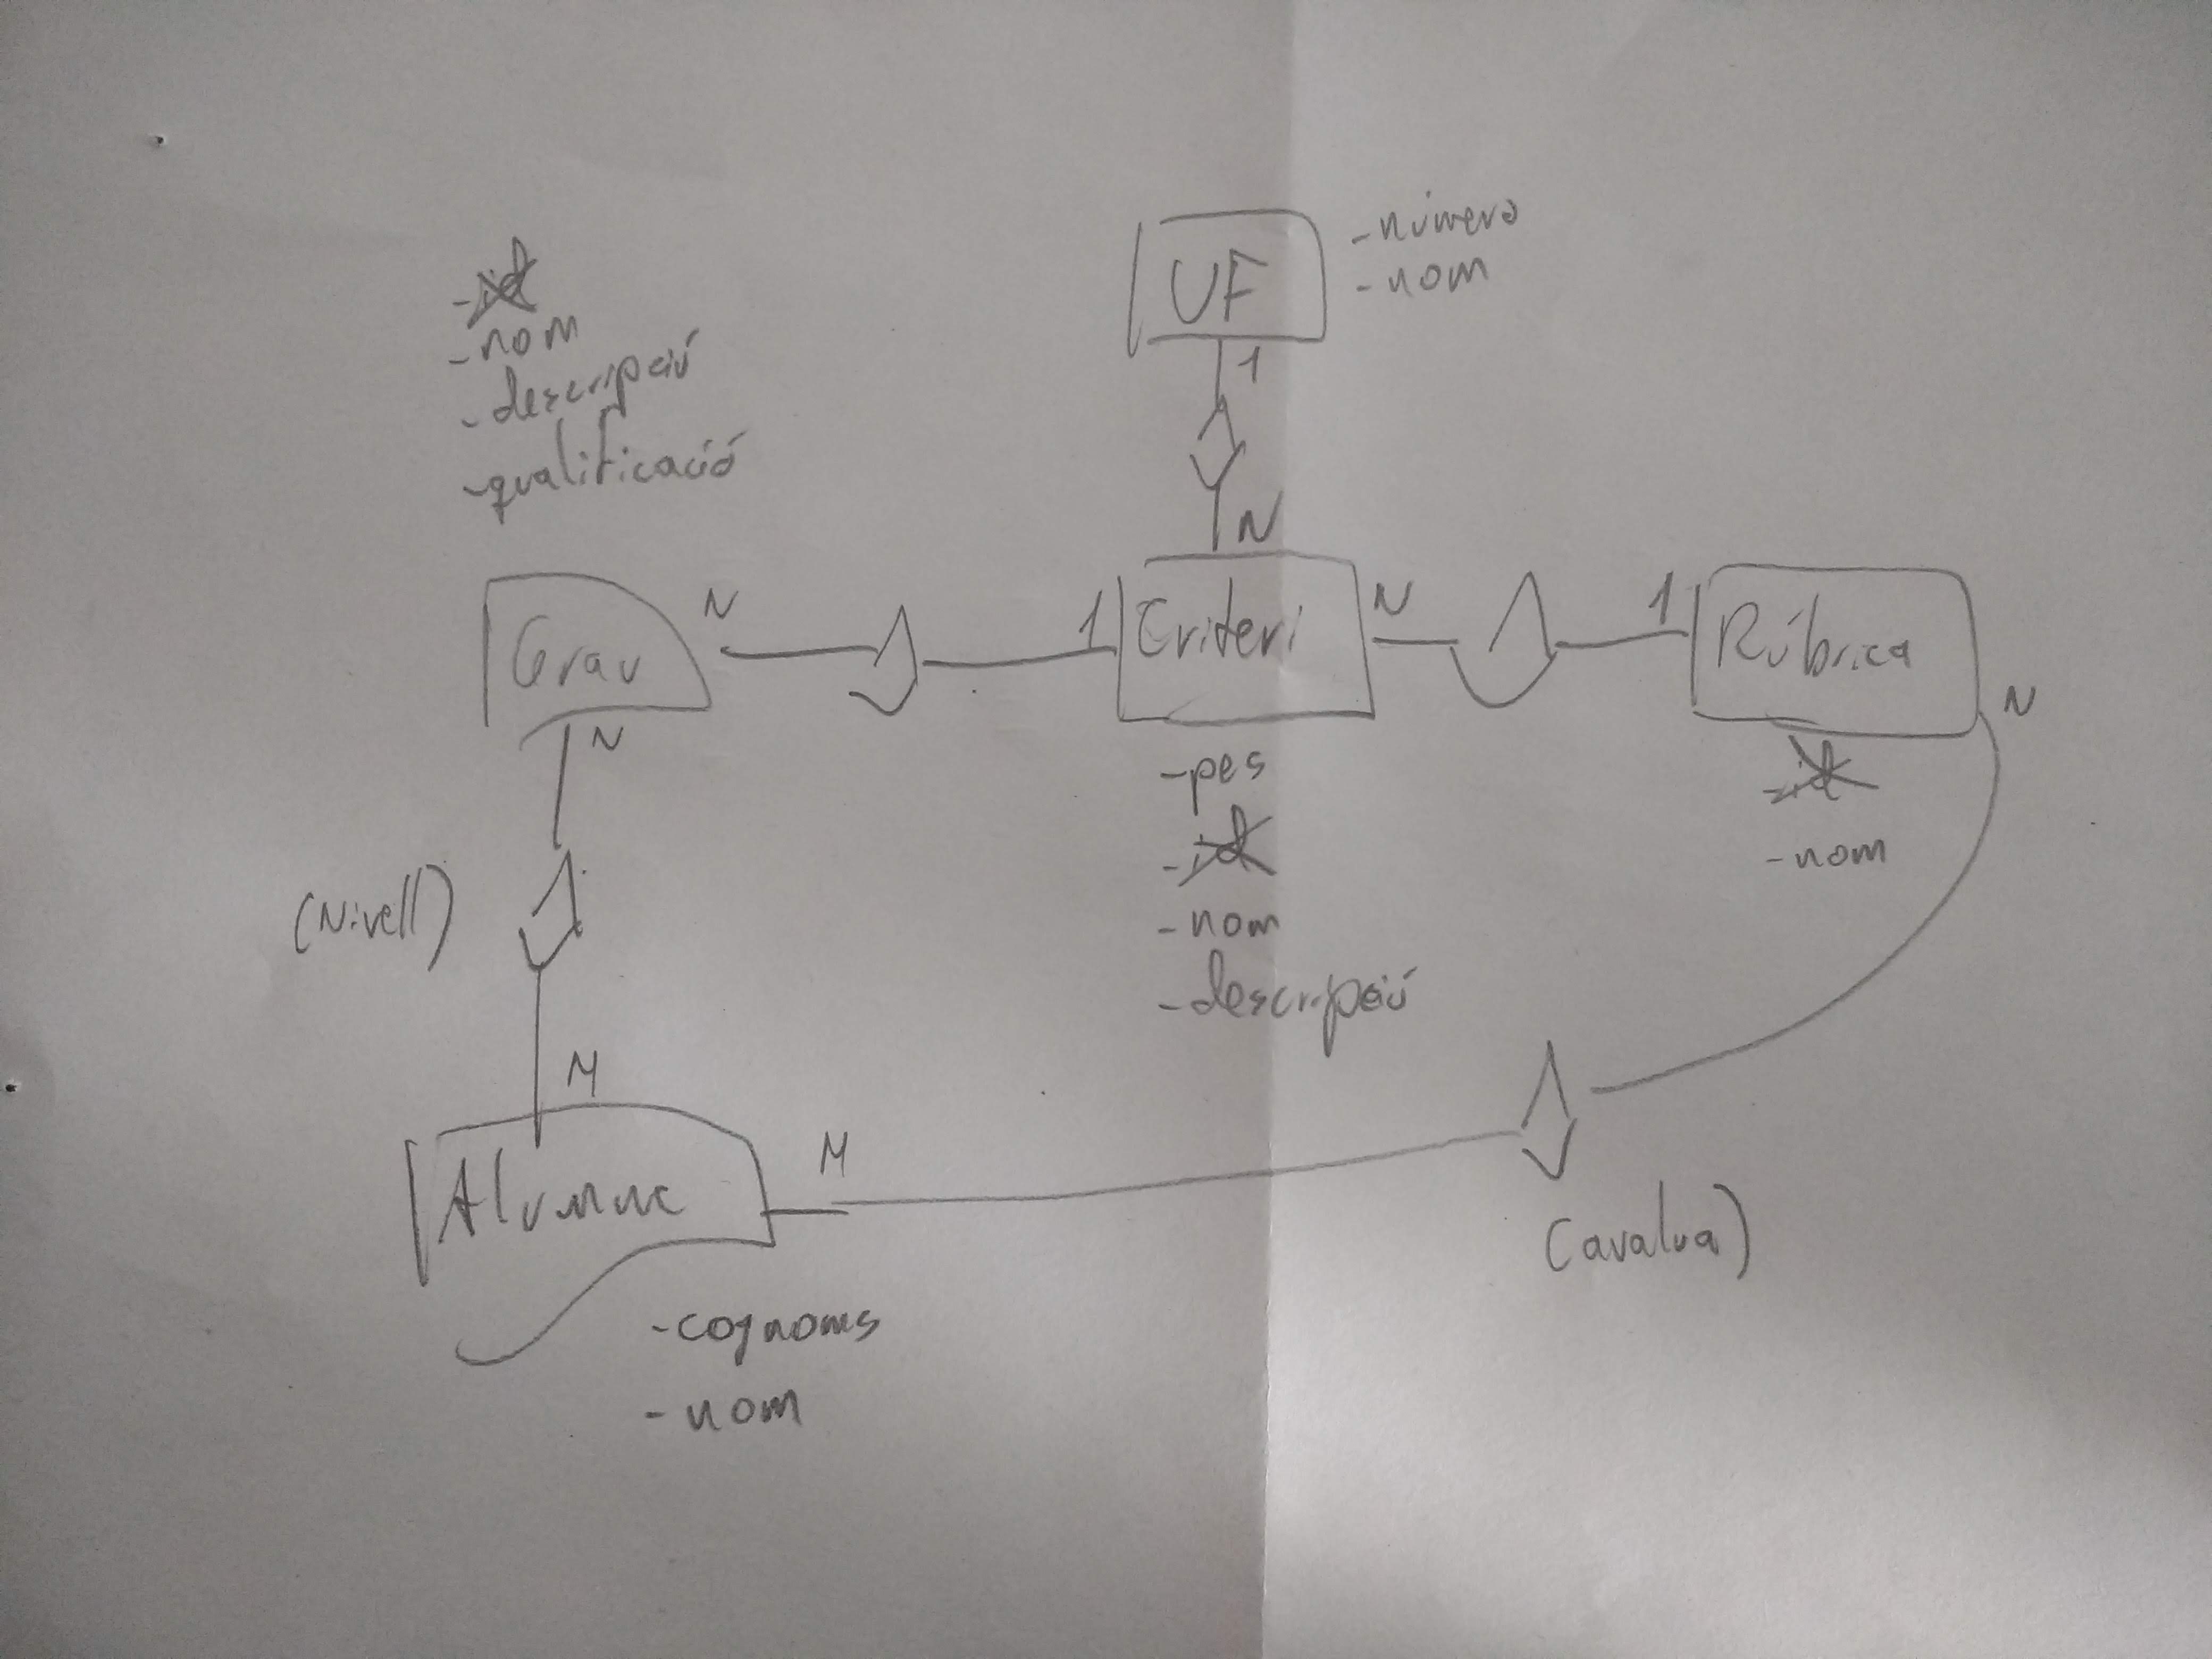 UF
-número
-nom
1
N
-id
-nom
-descripció
-qualificació
Grau
N
1
Criteri
N
1
Rúbrica
N
N
-pes
-id
-nom
-descripció
-id
-nom
(Nivell)
M
Alumne
M
-cognoms
-nom
(avalua)